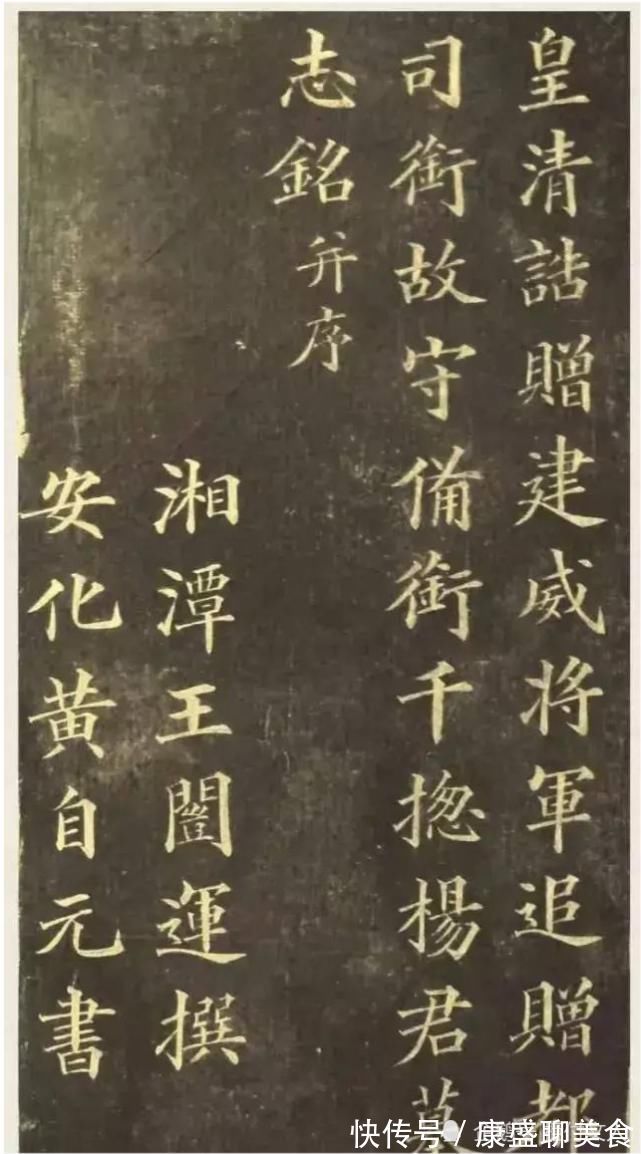 皇清誥贈建威將軍追贈都
司銜故守備銜千揔楊君墓
志銘并序
湘潭王闓運撰
安化黃自元書
快传号/康盛聊美食